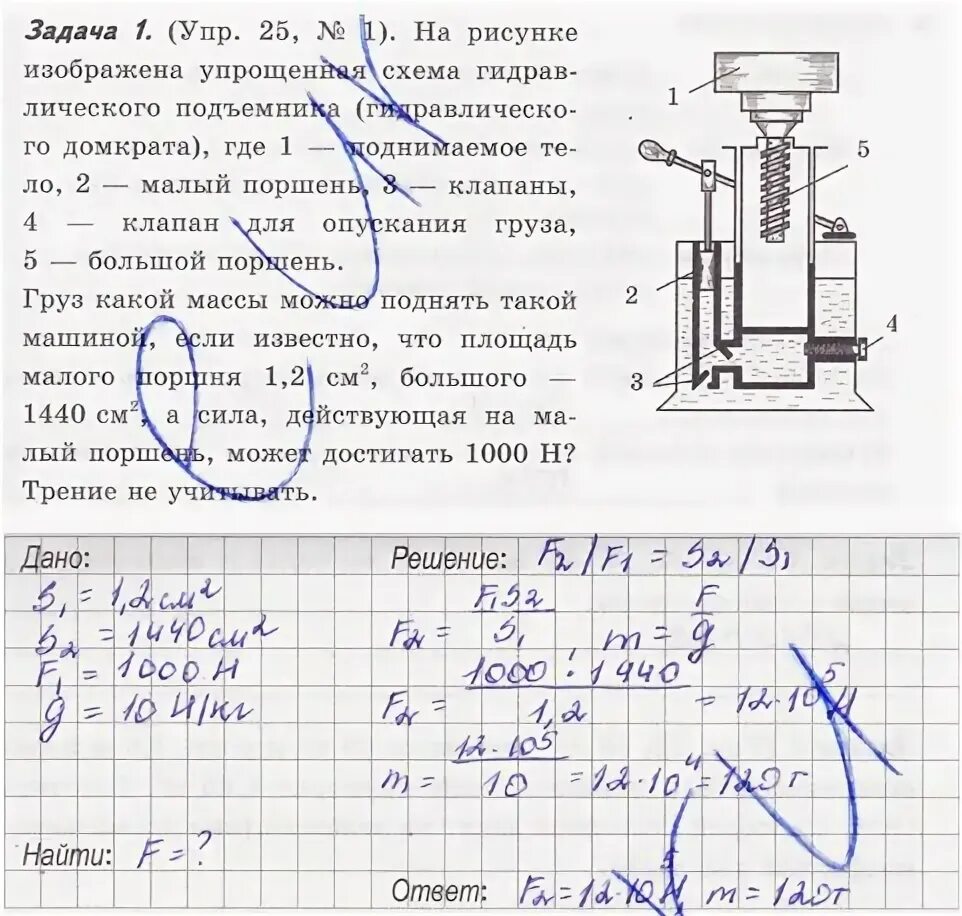 Задача 1. (Упр. 25, № 1). На рисунке
изображена упрощенная схема гидрав-
лического подъемника (гидравлическо-
го домкрата), где 1 — поднимаемое те-
ло, 2 — малый поршень, 3 — клапаны,
4 — клапан для опускания груза,
5 — большой поршень.
Груз какой массы можно поднять такой
машиной, если известно, что площадь
малого поршня 1,2 см², большого —
1440 см², а сила, действующая на ма-
лый поршень, может достигать 1000 Н?
Трение не учитывать.
1
5
2
4
3
Дано:
S₁ = 1,2 см²
S₂ = 1440 см²
F₁ = 1000 Н
g = 10 Н/кг
Найти: F = ?
Решение: F₂/F₁ = S₂/S₁
F₂ = F₁S₂/S₁ m = F/g
F₂ = 1000 : 1440/1,2 = 12·10⁵ Н
m = 12·10⁵/10 = 12·10⁴ = 120 т
Ответ: F₂ = 12·10⁵ Н m = 120т